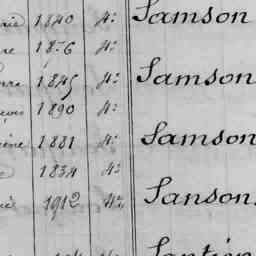 1840 4: Samson
re 1856 4:
1845 4: Samson
1890 4:
ène 1881 4: Samson
1834 4:
1912 4: Sanson.